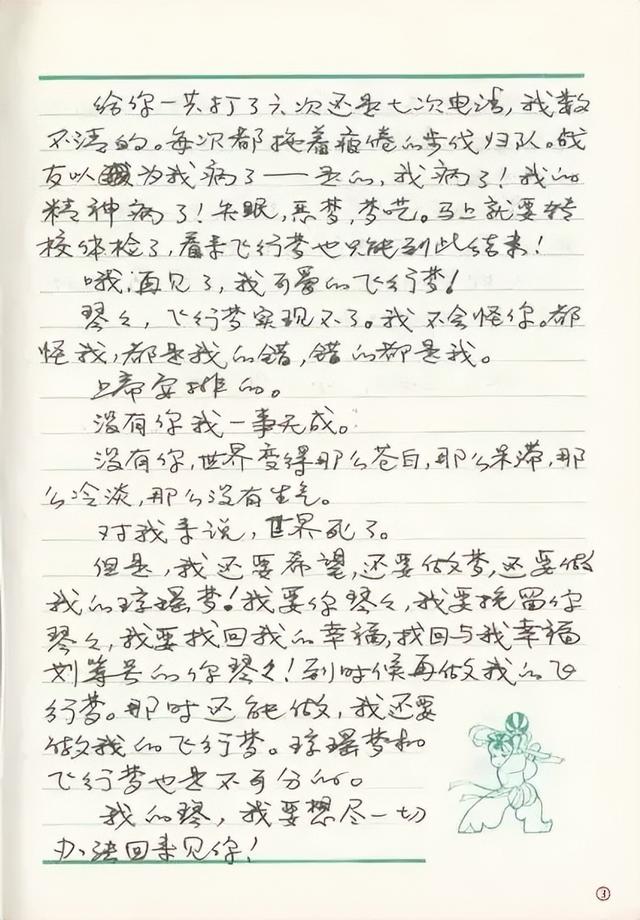 给你一共打了六次还是七次电话，我数
不清的。每次都拖着疲倦的步伐归队。战
友以为我病了——是的，我病了！我的
精神病了！失眠，恶梦，梦呓。马上就要转
校体检了，看来飞行梦也只能到此结束！
哦，再见了，我可爱的飞行梦！
琴々，飞行梦实现不了。我不会怪你。都
怪我，都是我的错，错的都是我。
上帝安排的。
没有你我一事无成。
没有你，世界变得那么苍白，那么呆滞，那
么冷淡，那么没有生气。
对我来说，世界死了。
但是，我还要希望，还要做梦，还要做
我的琼瑶梦！我要你琴々，我要挽留你
琴々，我要找回我的幸福，找回与我幸福
划等号的你琴々！到时候再做我的飞
行梦。那时还能做，我还要
做我的飞行梦。琼瑶梦和
飞行梦也是不可分的。
我的琴，我要想尽一切
办法回来见你！
3